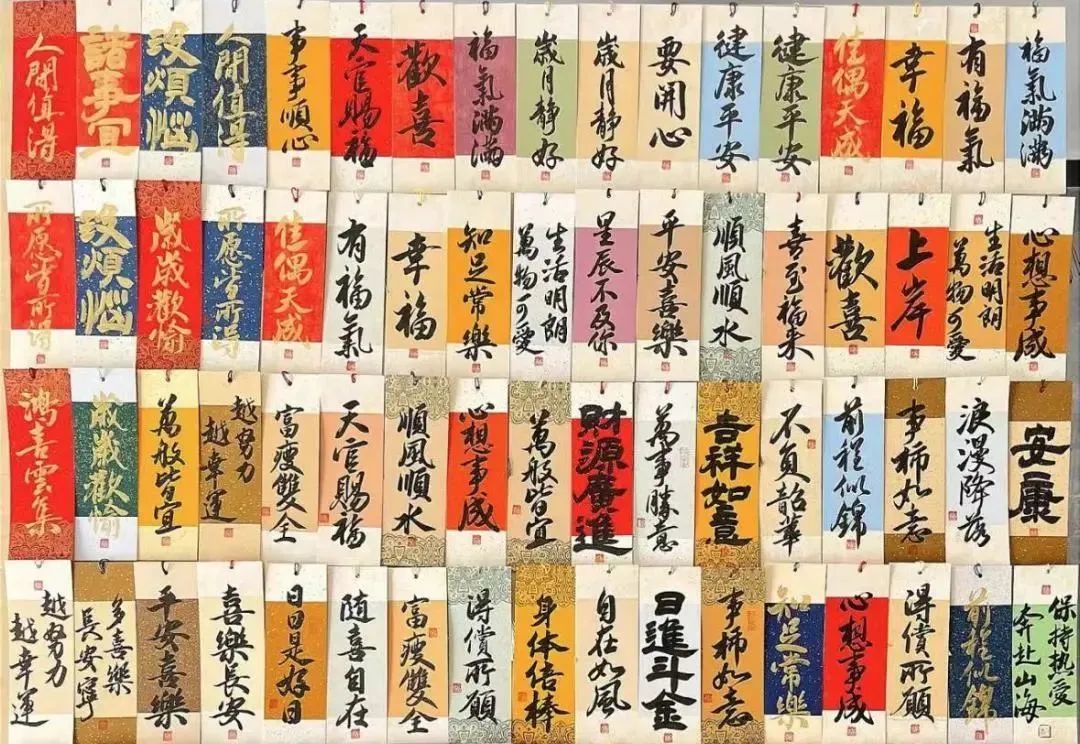 人間值得
諸事宜
沒煩惱
人間值得
事事順心
天官賜福
歡喜
福氣滿滿
歲月静好
歲月静好
要開心
健康平安
健康平安
佳偶天成
幸福
有福氣
福氣滿滿
所愿皆所得
沒煩惱
歲歲歡愉
所愿皆所得
佳偶天成
有福氣
幸福
知足常樂
生活明朗
萬物可愛
星辰不及你
平安喜樂
順風順水
喜至福来
歡喜
上岸
生活明朗
萬物可愛
心想事成
鴻喜雲集
歲歲歡愉
萬般皆宜
越努力
越幸運
富瘦雙全
天官賜福
順風順水
心想事成
萬般皆宜
財源廣進
萬事勝意
吉祥如意
不負韶華
前程似錦
事柿如意
浪漫降落
安康
越努力
越幸運
多喜樂
長安寧
平安喜樂
喜樂長安
日日是好日
随喜自在
富瘦雙全
得償所願
身体倍棒
自在如風
日進斗金
事柿如意
知足常樂
心想事成
得償所願
前程似錦
保持热爱
奔赴山海